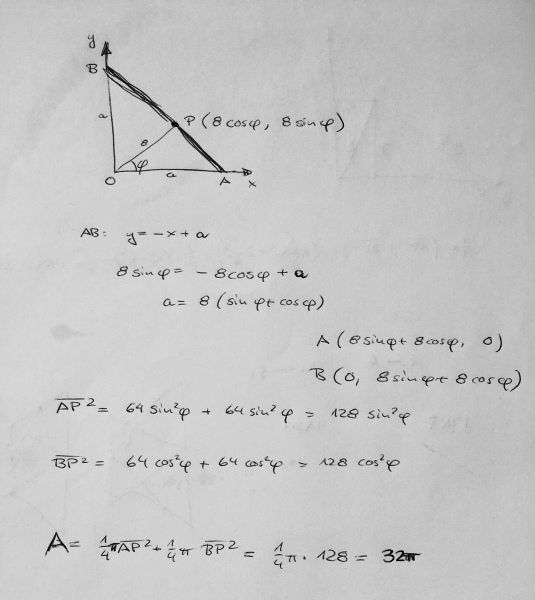 y
B
P (8 cosφ, 8 sinφ)
a
8
φ
O
a
A
x
AB: y = -x + a
8 sin φ = - 8cos φ + a
a = 8 (sin φ + cos φ)
A (8 sin φ + 8 cos φ, 0)
B (0, 8 sin φ + 8 cos φ)
AP² = 64 sin²φ + 64 sin²φ = 128 sin²φ
BP² = 64 cos²φ + 64 cos²φ = 128 cos²φ
A = 1/4 π AP² + 1/4 π BP² = 1/4 π · 128 = 32π